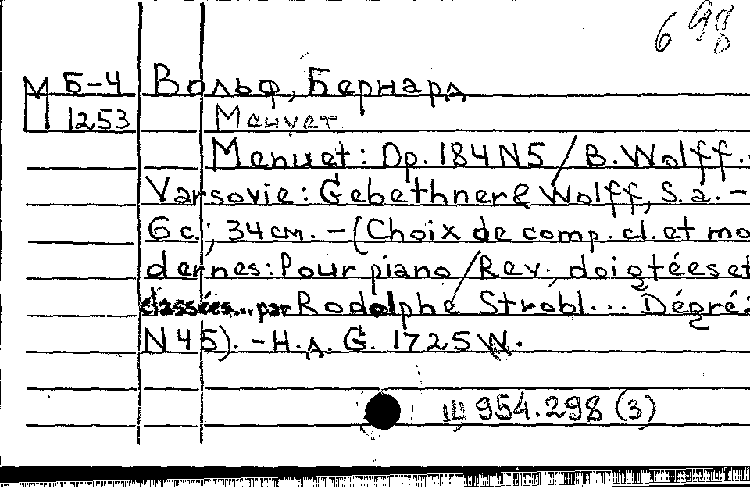 698
М Б-4 Вольф, Бернард
1253 Менует
Menuet: Op. 184 N5 / B. Wolff. -
Varsovie: Gebethner & Wolff, S. a. -
6 c.; 34 см. - (Choix de comp. cl. et mo
dernes: Pour piano / Rev., doigtées et
classées... par Rodolphe Strobl... Dégré:
N45). - Н. д. G. 1725 W.
Ш 954.298 (3)